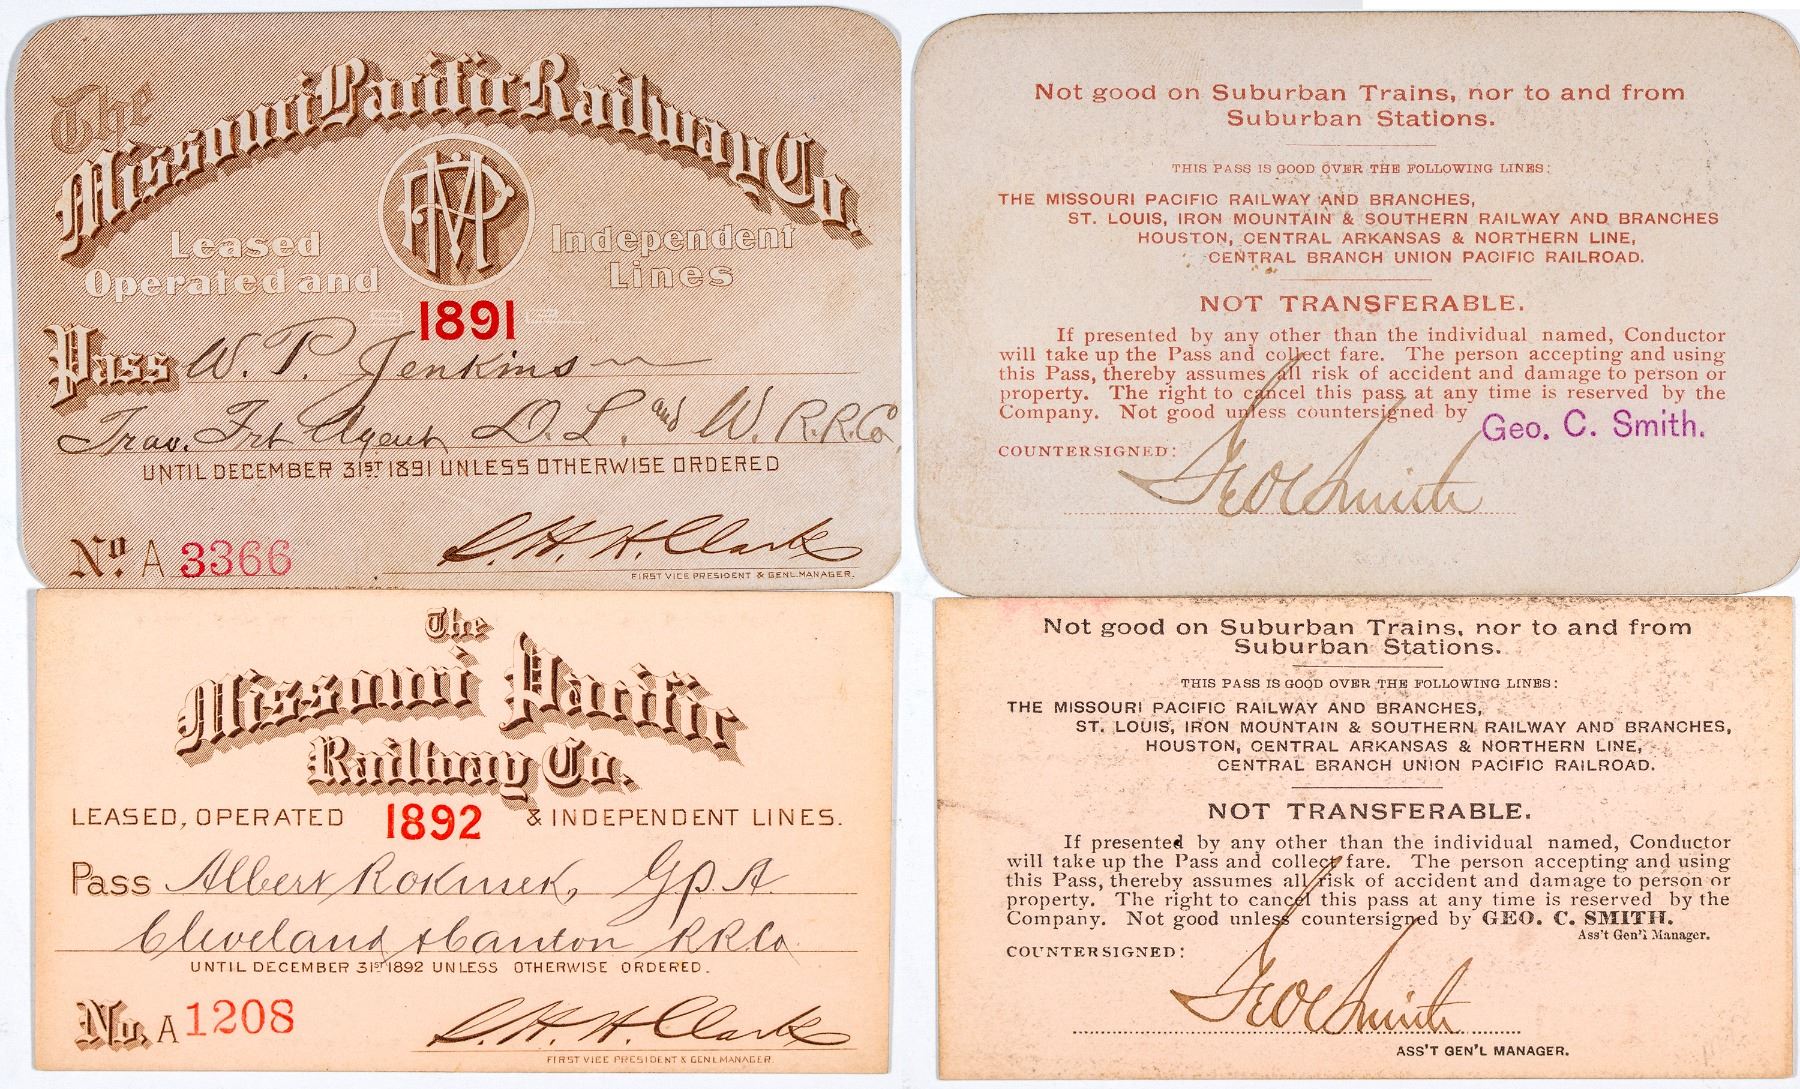 The
Missouri Pacific Railway Co.
MP
Leased Operated and
Independent Lines
1891
Pass W. P. Jenkins
Trav. Frt Agent D. L. and W. R.R.Co.
UNTIL DECEMBER 31ST 1891 UNLESS OTHERWISE ORDERED
No. A 3366
S. H. H. Clark
FIRST VICE PRESIDENT & GENL. MANAGER.
Not good on Suburban Trains, nor to and from
Suburban Stations.
THIS PASS IS GOOD OVER THE FOLLOWING LINES:
THE MISSOURI PACIFIC RAILWAY AND BRANCHES,
ST. LOUIS, IRON MOUNTAIN & SOUTHERN RAILWAY AND BRANCHES
HOUSTON, CENTRAL ARKANSAS & NORTHERN LINE,
CENTRAL BRANCH UNION PACIFIC RAILROAD.
NOT TRANSFERABLE.
If presented by any other than the individual named, Conductor
will take up the Pass and collect fare. The person accepting and using
this Pass, thereby assumes all risk of accident and damage to person or
property. The right to cancel this pass at any time is reserved by the
Company. Not good unless countersigned by Geo. C. Smith.
COUNTERSIGNED:
Geo C Smith
The
Missouri Pacific
Railway Co.
LEASED, OPERATED 1892 & INDEPENDENT LINES.
Pass Albert Rokusek, G.P.A.
Cleveland & Canton R.R.Co.
UNTIL DECEMBER 31ST 1892 UNLESS OTHERWISE ORDERED.
No. A 1208
S. H. H. Clark
FIRST VICE PRESIDENT & GENL MANAGER.
Not good on Suburban Trains, nor to and from
Suburban Stations.
THIS PASS IS GOOD OVER THE FOLLOWING LINES:
THE MISSOURI PACIFIC RAILWAY AND BRANCHES,
ST. LOUIS, IRON MOUNTAIN & SOUTHERN RAILWAY AND BRANCHES,
HOUSTON, CENTRAL ARKANSAS & NORTHERN LINE,
CENTRAL BRANCH UNION PACIFIC RAILROAD.
NOT TRANSFERABLE.
If presented by any other than the individual named, Conductor
will take up the Pass and collect fare. The person accepting and using
this Pass, thereby assumes all risk of accident and damage to person or
property. The right to cancel this pass at any time is reserved by the
Company. Not good unless countersigned by GEO. C. SMITH.
Ass't Gen'l Manager.
COUNTERSIGNED:
Geo C Smith
ASS'T GEN'L MANAGER.